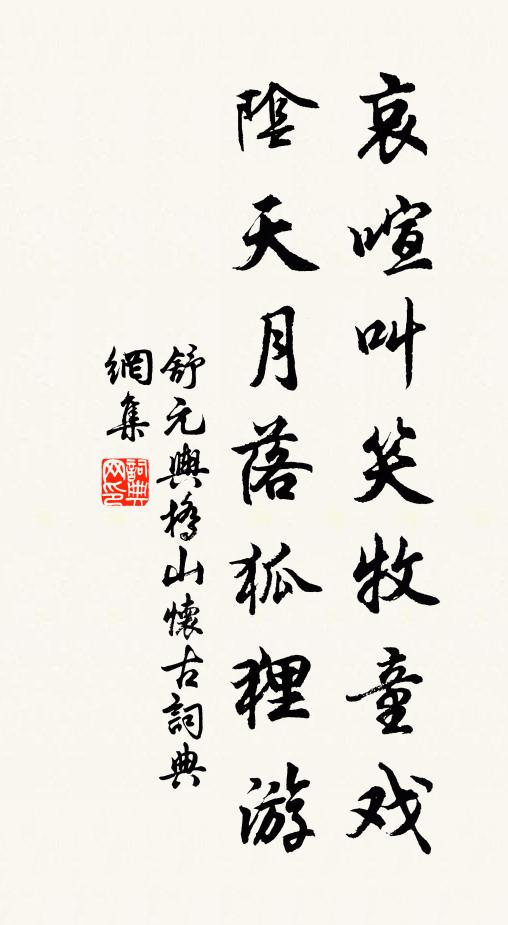 哀喧叫笑牧童戏
陰天月落狐狸游
舒元輿橋山懷古詞典
網集
詞典
网印